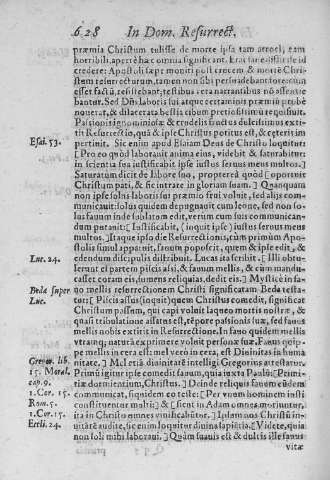 628 In Dom. Resurrect.
præmia Christum tulisse de morte ipsa tam atroci, tam
horribili, aperte hæc omnia significant. Erat fas id
credere: Apostoli sæpe moniti post crucem & mortem Christum
resurrecturum, tamen non sibi persuadebant fore: cum
esset factũ, resistebant, testibus vera narrantibus nõ assentiebantur.
Sed Dñs laboris sui atque certaminis præmiũ probè
nouerat, & dilacerata bellis cibum pretiosissimũ
Passionis ignominiosæ & crudelis fructus delectissimus
Resurrectio, quâ & ipse Christus potitus est, & cęteris impertinit.
Esai. 53. Sic enim apud Esaiam Deus de Christo loquitur:
[Pro eo quòd laborauit anima eius, videbit & saturabitur:
in scientia sua iustificabit ipse iustus seruus meus multos.]
Saturatum dicit de labore suo, propterea quòd oportuit
Christum pati, & sic intrare in gloriam suam.] Quanquam
non ipse solus laboris sui præmio frui voluit, sed aliis communicauit:
solus quidem depugnauit cum leone, sed non solus
fauum inde sublatum edit, verùm cum suis communicandum
putauit: [Iustificabit, (inquit) ipse iustus seruus meus
multos.] Itaque ipso die Resurrectionis, cùm primùm Apostolis
simul apparuit, fauum poposcit, quem & ipse edit, &
Luc. 24. edendum discipulis distribuit. Lucas ita scribit. [Illi obtulerunt
ei partem piscis assi, & fauum mellis, & cùm manducasset
coram eis, sumens reliquias, dedit eis.] Mysticè in fauo
Beda super mellis resurrectionem Christi significatam Beda testatur:
Luc. [Piscis assus (inquit) quem Christus comedit, significat
Christum passum, qui capi voluit laqueo mortis nostræ, &
quasi tribulatione assatus est, tẽpore passionis suæ, sed fauus
mellis nobis extitit in Resurrectione. In fauo quidem mellis
vtranq; naturã exprimere voluit personæ suæ. Fauus quippe
mellis in cera est: mel verò in cera, est Diuinitas in humanitate.]
Gregor. lib. Mel etiã diuinitatẽ intelligi Gregorius attestatur.
15. Moral. Primũ igitur ipse comedit fauum, quia iuxta Paulũ: [Primitiæ
cap. 9. dormientium, Christus.] Deinde reliquis fauum eûdem
1. Cor. 15. communicat, siquidem eo teste: [Per vnum hominem iusti
Rom. 5. constituentur multi:] & [sicut in Adam omnes moriuntur,
1. Cor. 15. ita in Christo omnes viuificabuntur.] Ipsam nos Christũ inuitantẽ
Eccli. 24. audite, sic enim loquitur diuina sapiẽtia. [Videte, quia
non soli mihi laboraui.] Quàm suauis est & dulcis ille fauus
vitæ